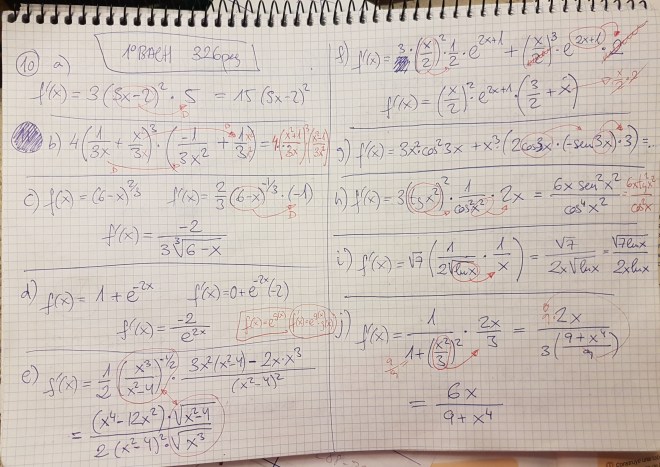 1º BACH 326 pag
10 a)
f'(x) = 3(3x-2)² · 5 = 15(5x-2)²
b) 4(1/3x + x/3)³ · (-1/3x² + 1/3) =
c) f(x) = (6-x)^2/3 f'(x) = 2/3 (6-x)^-1/3 · (-1)
f'(x) = -2 / 3∛(6-x)
d) f(x) = 1 + e^-2x f'(x) = 0 + e^-2x (-2)
f'(x) = -2 / e^2x
e) f'(x) = 1/2 (x³ / x²-4)^-1/2 · 3x²(x²-4) - 2x·x³ / (x²-4)²
= (x⁴-12x²)·√(x²-4) / 2(x²-4)²·√x³
f) f'(x) = 3 · (x/2)² · 1/2 · e^2x+1 + (x/2)³ · e^2x+1 · 2
f'(x) = (x/2)² · e^2x+1 · (3/2 + x)
g) f'(x) = 3x²·cos²3x + x³·(2cos3x·(-sen3x)·3) = ...
h) f'(x) = 3(tg x²)² · 1/cos²x² · 2x = 6x sen²x² / cos⁴x²
i) f'(x) = √7 (1 / 2√lnx · 1/x) = √7 / 2x√lnx = √7lnx / 2xlnx
j) f'(x) = 1 / 1+(x²/3)² · 2x/3 = 2x / 3(9+x⁴ / 9)
= 6x / 9+x⁴